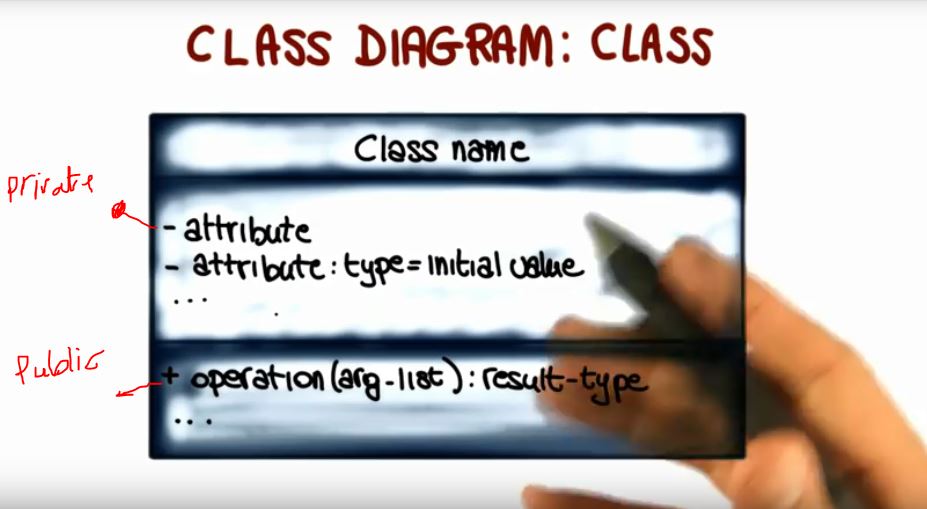 CLASS DIAGRAM: CLASS
Class name
private
- attribute
- attribute: type = initial value
...
Public
+ operation (arg-list): result-type
...